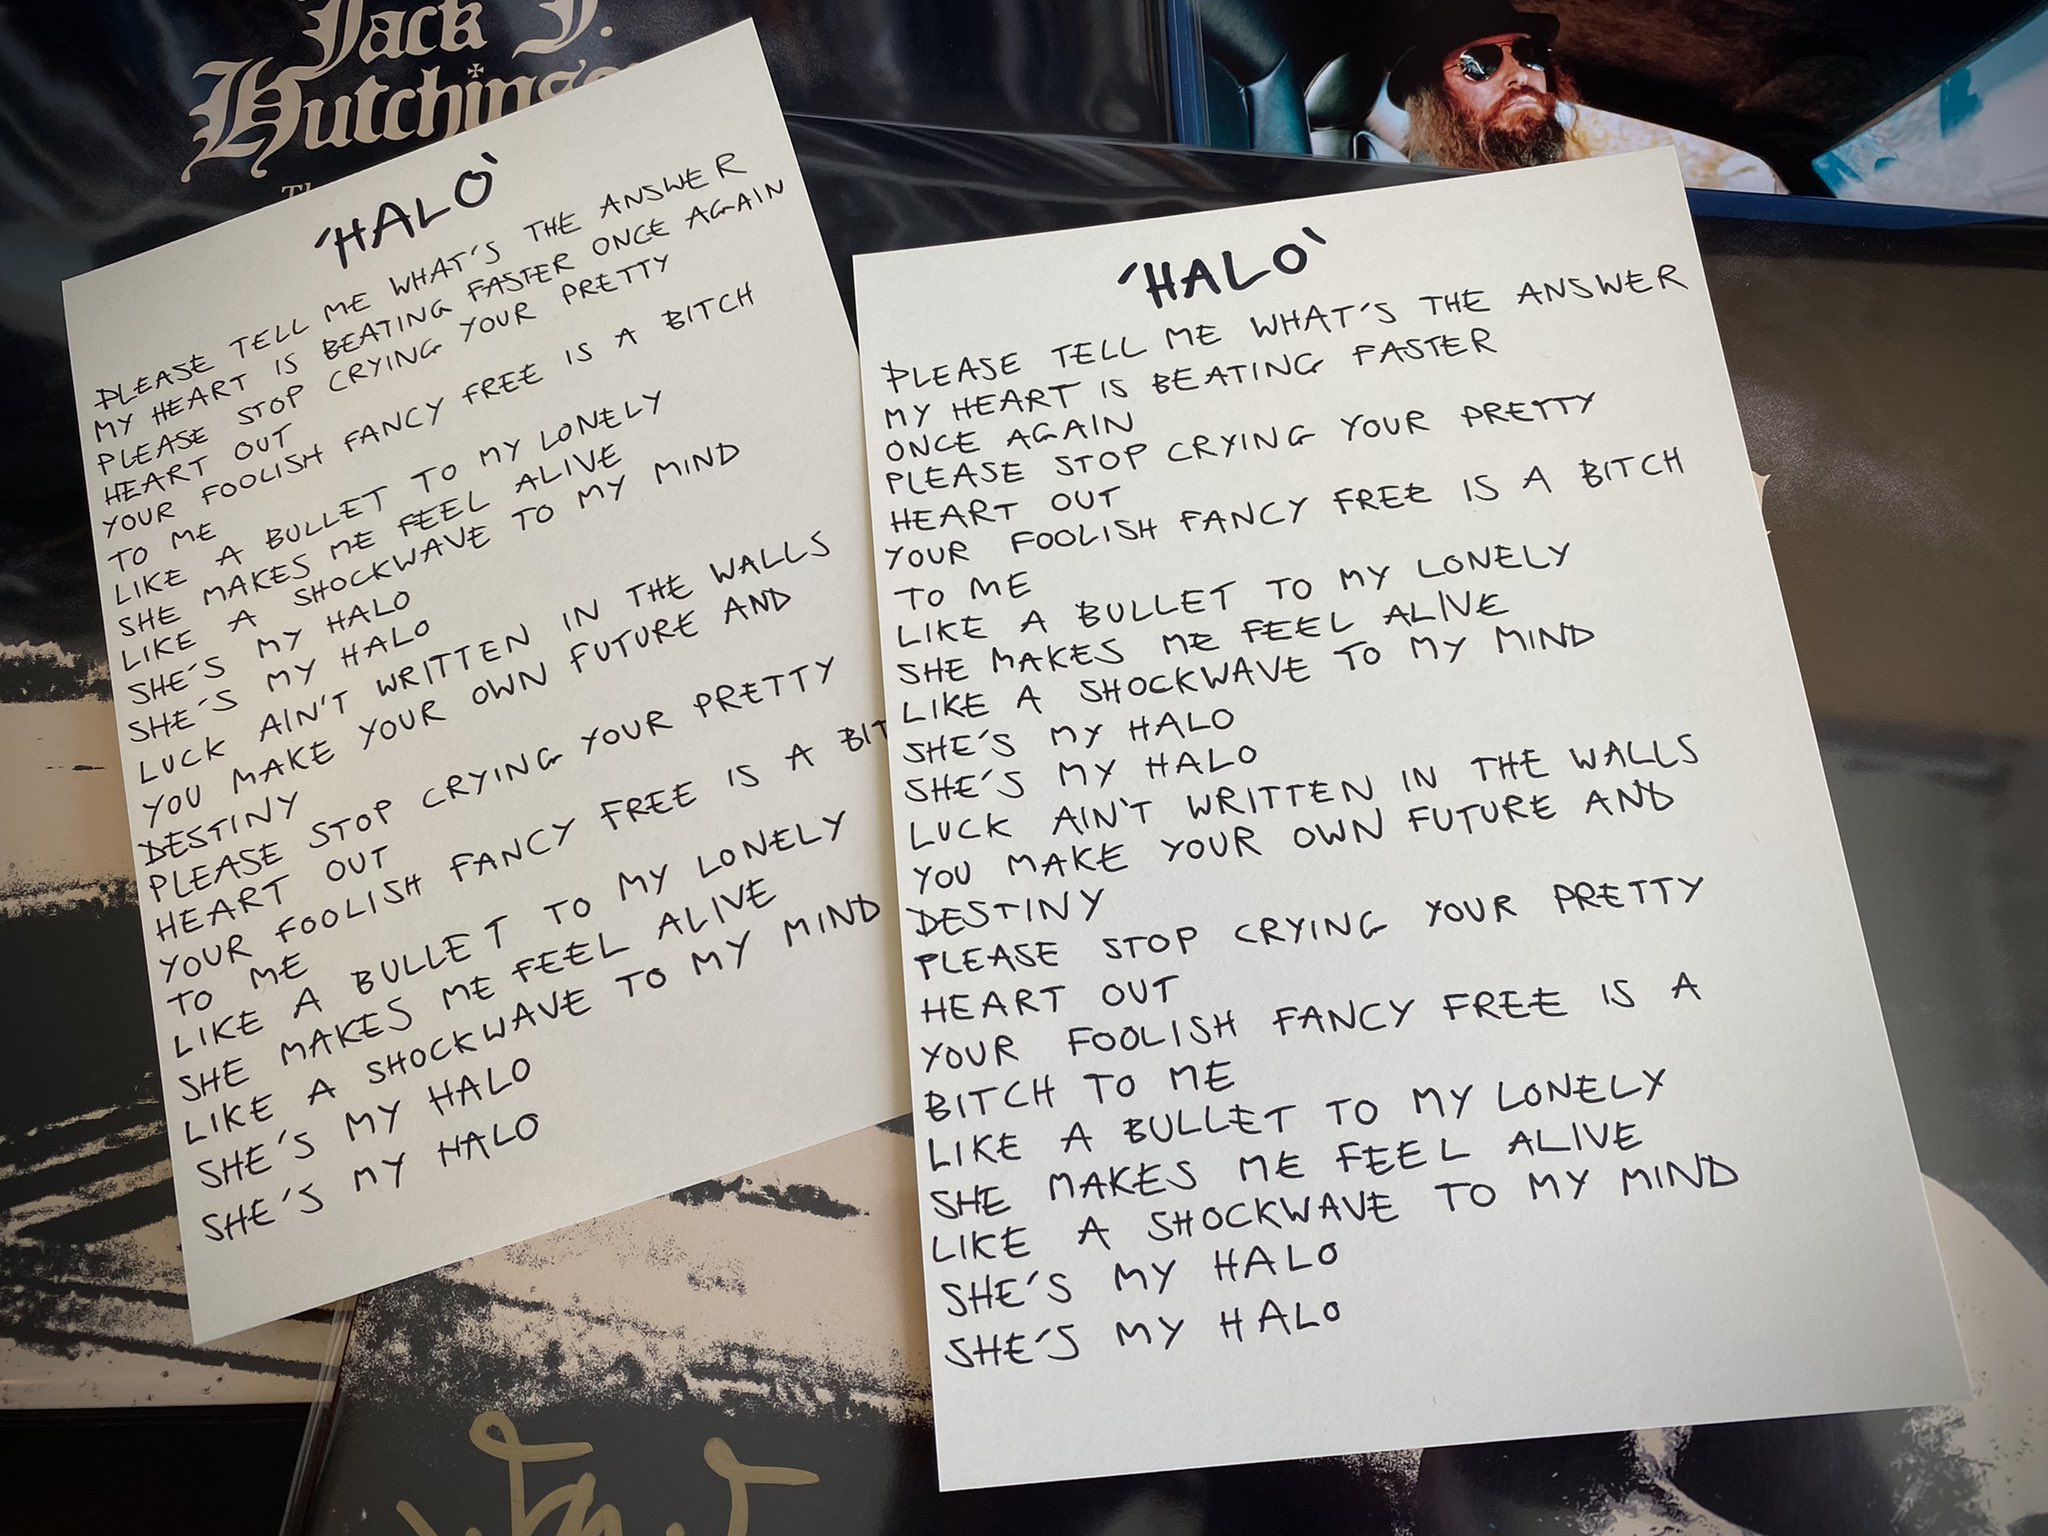 Jack J.
Hutchinson
'HALO'
PLEASE TELL ME WHAT'S THE ANSWER
MY HEART IS BEATING FASTER ONCE AGAIN
PLEASE STOP CRYING YOUR PRETTY
HEART OUT
YOUR FOOLISH FANCY FREE IS A BITCH
TO ME
LIKE A BULLET TO MY LONELY
SHE MAKES ME FEEL ALIVE
LIKE A SHOCKWAVE TO MY MIND
SHE'S MY HALO
SHE'S MY HALO
LUCK AIN'T WRITTEN IN THE WALLS
YOU MAKE YOUR OWN FUTURE AND
DESTINY
PLEASE STOP CRYING YOUR PRETTY
HEART OUT
YOUR FOOLISH FANCY FREE IS A BIT
TO ME
LIKE A BULLET TO MY LONELY
SHE MAKES ME FEEL ALIVE
LIKE A SHOCKWAVE TO MY MIND
SHE'S MY HALO
SHE'S MY HALO
'HALO'
PLEASE TELL ME WHAT'S THE ANSWER
MY HEART IS BEATING FASTER
ONCE AGAIN
PLEASE STOP CRYING YOUR PRETTY
HEART OUT
YOUR FOOLISH FANCY FREE IS A BITCH
TO ME
LIKE A BULLET TO MY LONELY
SHE MAKES ME FEEL ALIVE
LIKE A SHOCKWAVE TO MY MIND
SHE'S MY HALO
SHE'S MY HALO
LUCK AIN'T WRITTEN IN THE WALLS
YOU MAKE YOUR OWN FUTURE AND
DESTINY
PLEASE STOP CRYING YOUR PRETTY
HEART OUT
YOUR FOOLISH FANCY FREE IS A
BITCH TO ME
LIKE A BULLET TO MY LONELY
SHE MAKES ME FEEL ALIVE
LIKE A SHOCKWAVE TO MY MIND
SHE'S MY HALO
SHE'S MY HALO